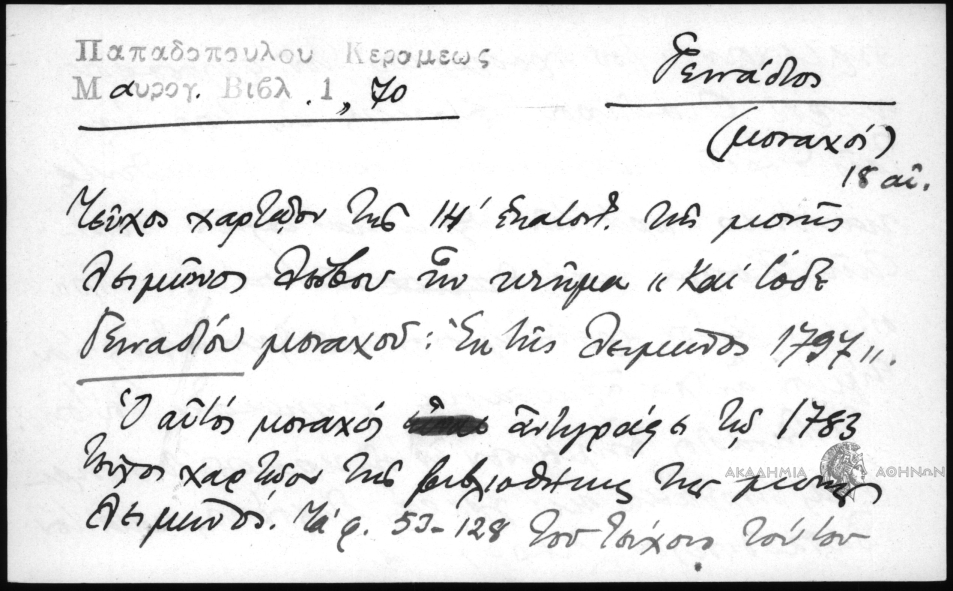 Παπαδοπουλου Κεραμεως
Μαυρογ. Βιβλ. 1, 70
Γεννάδιος
(μοναχός)
18 αἰ.
Τεῦχος χαρτῶον τῆς ΙΗ' ἑκατοντ. τῆς μονῆς
Λειμῶνος Λέσβου ἦν κτῆμα « Καὶ τόδε
Γενναδίου μοναχοῦ: Ἐκ τῆς Λειμῶνος 1797».
Ὁ αὐτὸς μοναχός ἀντέγραψε τῷ 1783
τεῦχος χαρτῶον τῆς βιβλιοθήκης τῆς μονῆς
Λειμῶνος. Τὰ φ. 53-128 τοῦ τεύχους τούτου
ΑΚΑΔΗΜΙΑ ΑΘΗΝΩΝ